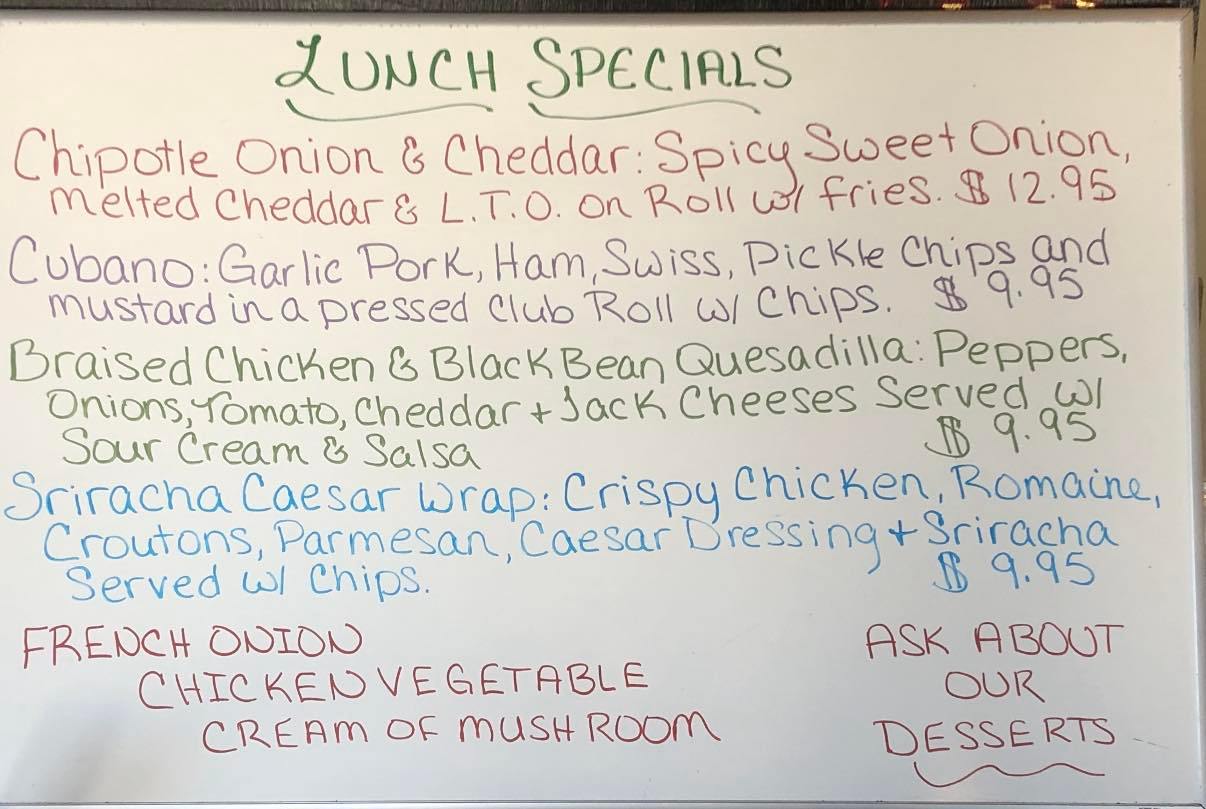 LUNCH SPECIALS
Chipotle Onion & Cheddar: Spicy Sweet Onion,
Melted Cheddar & L.T.O. on Roll w/ fries. $ 12.95
Cubano: Garlic Pork, Ham, Swiss, Pickle Chips and
mustard in a pressed Club Roll w/ Chips. $ 9.95
Braised Chicken & Black Bean Quesadilla: Peppers,
Onions, Tomato, Cheddar + Jack Cheeses Served w/
Sour Cream & Salsa $ 9.95
Sriracha Caesar Wrap: Crispy Chicken, Romaine,
Croutons, Parmesan, Caesar Dressing + Sriracha
Served w/ Chips. $ 9.95
FRENCH ONION
CHICKEN VEGETABLE
CREAM OF MUSHROOM
ASK ABOUT
OUR
DESSERTS